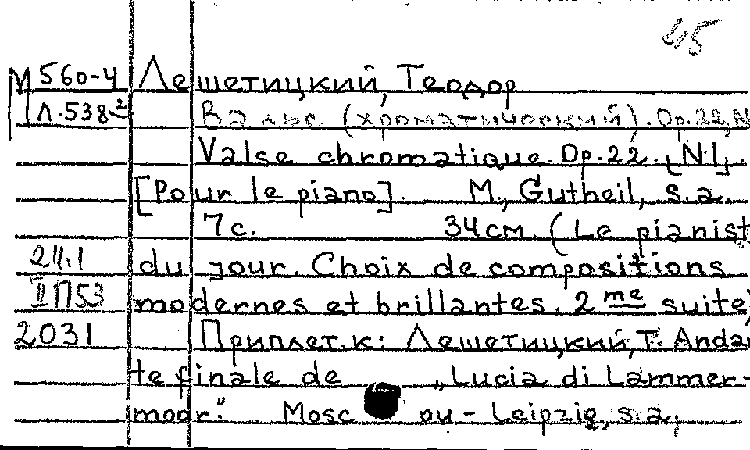 45
М 560-4 Лешетицкий, Теодор
Л.538-2 Вальс (хроматический). Op.22, N
Valse chromatique. Op.22. [N1].
[Pour le piano]. M., Gutheil, s.a.
7с. 34см. (Le pianist
211.1 du jour. Choix de compositions
II П53 modernes et brillantes. 2me suite)
2031 Приплет. к: Лешетицкий, Т. Andan
te finale de „Lucia di Lammer-
moor." Moscou - Leipzig, s.a.